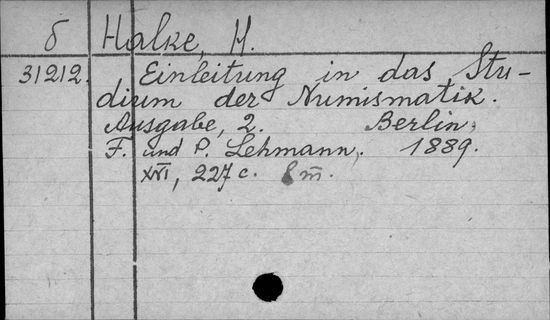 б Halke, H.
31212. Einleitung in das Stu-
dium der Numismatik.
Ausgabe, 2. Berlin,
F. und P. Lehmann, 1889.
XVI, 227 c. 8 m.